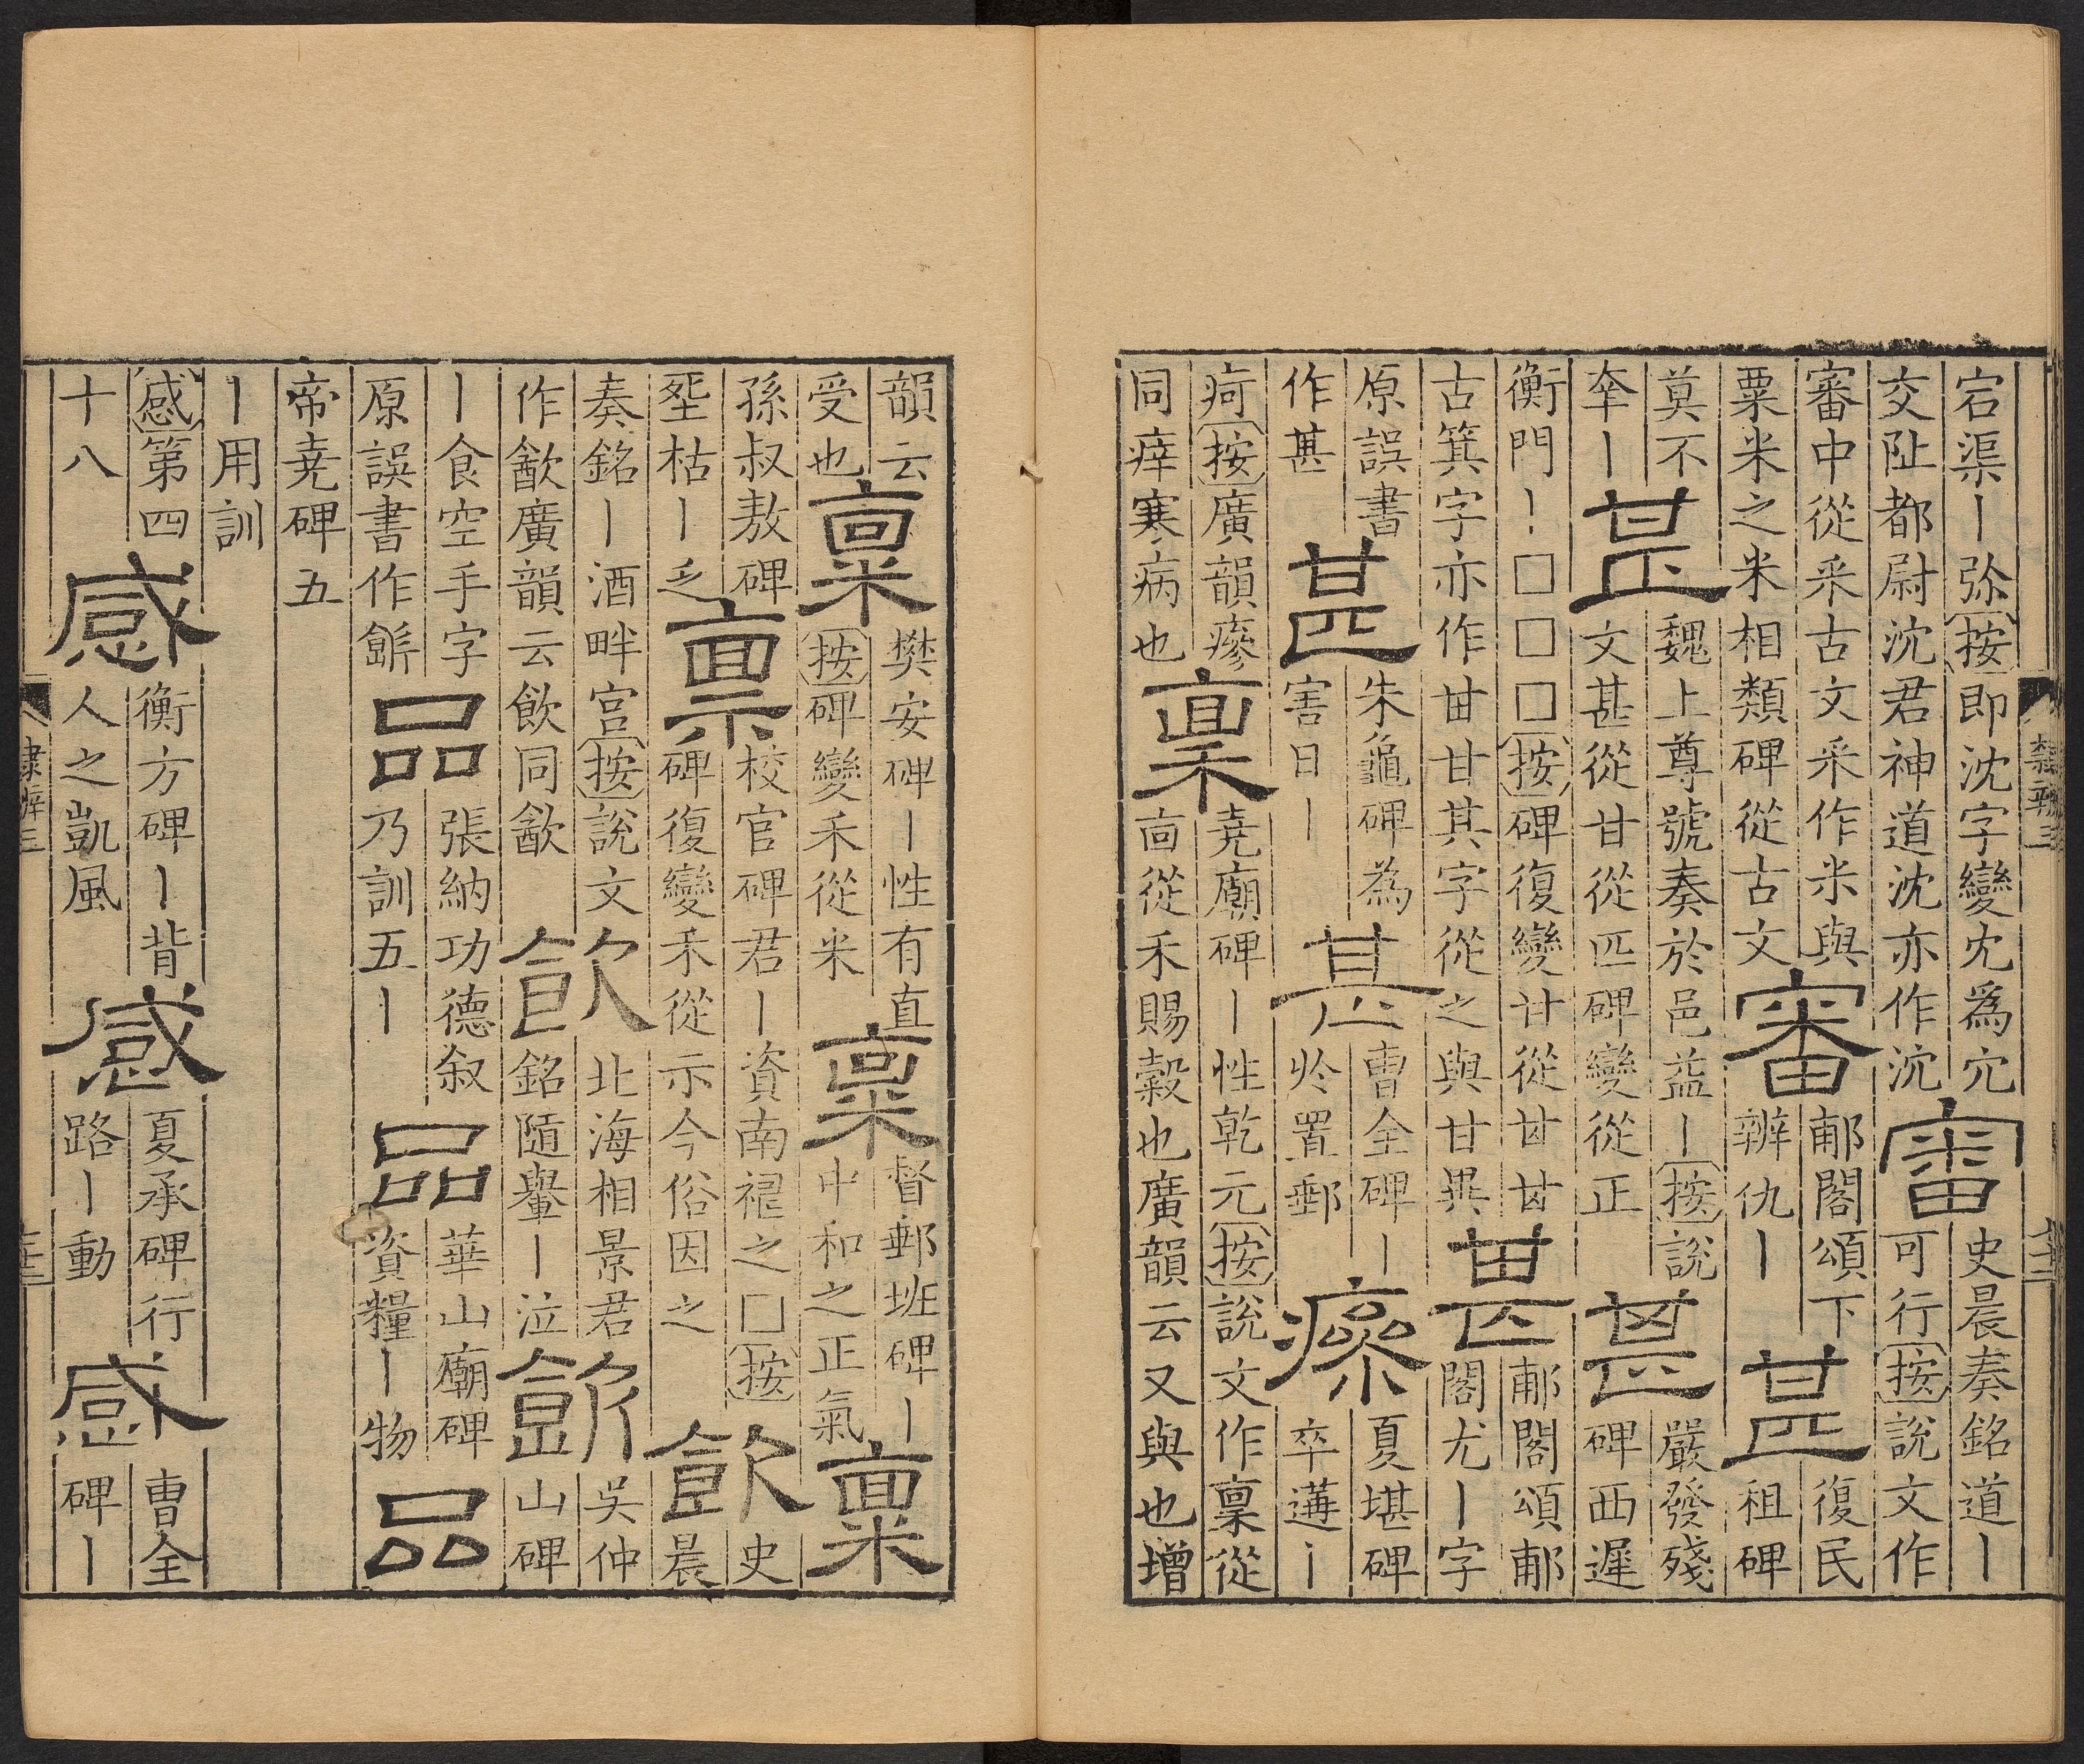 宕渠丨弥按即沈字變冘爲宂審史晨奏銘道丨
交阯都尉沈君神道沈亦作沉可行按說文作
審中從釆古文釆作米與審郙閣頌下甚復民
粟米之米相類碑從古文辨仇丨租碑
莫不甚魏上尊號奏於邑益丨按說甚嚴發殘
夲丨文甚從甘從匹碑變從正碑西遲
衡門丨□□□按碑復變甘從甘甘甚郙閣頌郙
古箕字亦作甘甘其字從之與甘異閣尤丨字
原誤書甚朱龜碑為甚曹全碑丨瘮夏堪碑
作甚害日丨扵置郵卒遘丨
疴按廣韻瘮稟堯廟碑丨性乾元按說文作稟從
同痒寒病也㐭從禾賜穀也廣韻云又與也增
韻云稟樊安碑丨性有直稟督郵班碑丨稟
受也按碑變禾從米中和之正氣
孫叔敖碑稟校官碑君丨資南之□按飲史
坙枯丨乏碑復變禾從示今俗因之晨
奏銘丨酒畔宫按說文飲北海相景君飲吳仲
作㱃廣韻云飲同㱃銘隨轝丨泣山碑
丨食空手字品張納功德叙品華山廟碑品
原誤書作乃訓五丨資糧丨物
帝堯碑五
丨用訓
感第四感衡方碑丨背感夏承碑行感曹全
十八人之凱風路丨動碑丨
隸辨三